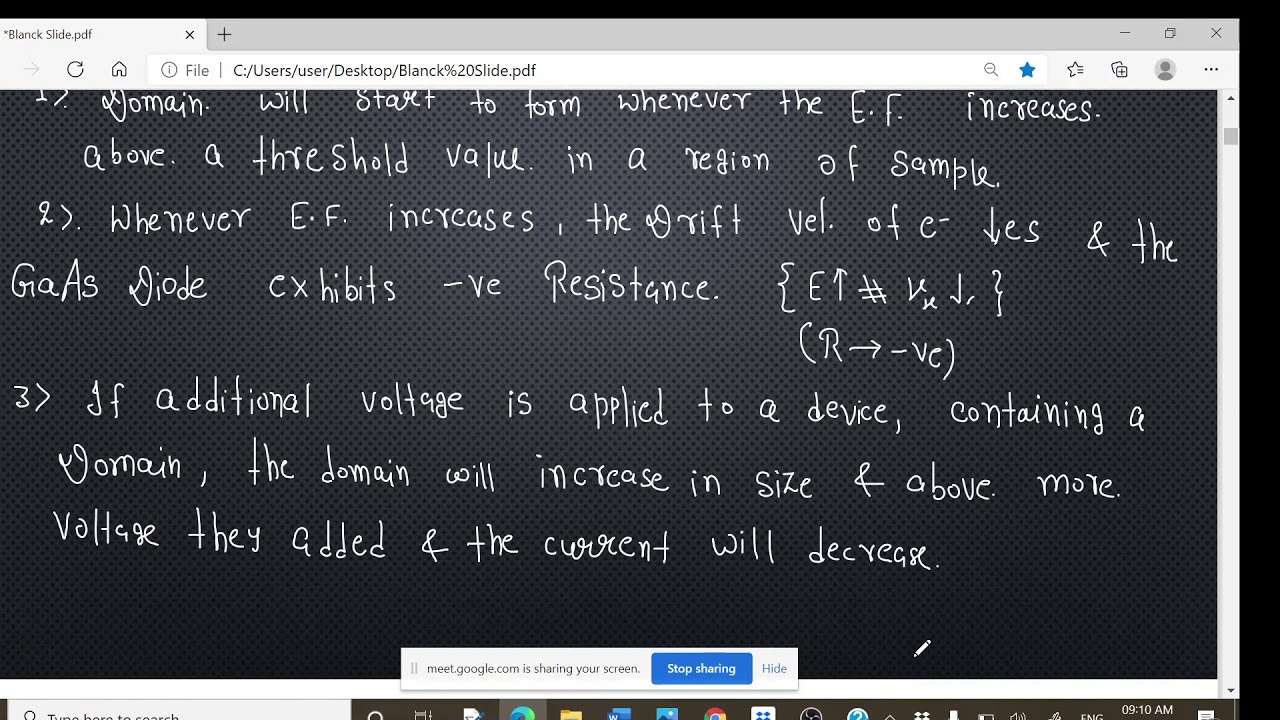 *Blanck Slide.pdf
File
C:/Users/user/Desktop/Blanck%20Slide.pdf
1>. Domain. will start to form whenever the E.F. increases.
above. a threshold value. in a region of sample.
2>. Whenever E.F. increases, the Drift vel. of e- ↓es & the
GaAs Diode exhibits -ve Resistance. {E↑ # Vx ↓.}
(R → -ve)
3> If additional voltage is applied to a device, containing a
Domain, the domain will increase in size & above. more.
voltage they added & the current will decrease.
meet.google.com is sharing your screen.
Stop sharing
Hide
Type here to search
ENG
09:10 AM